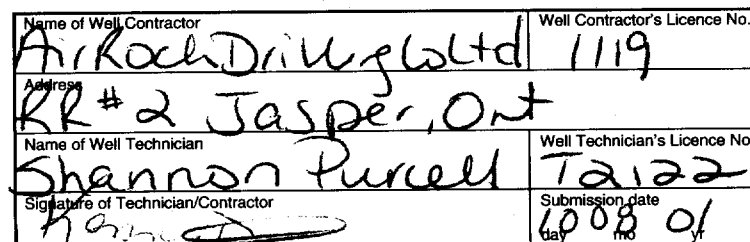 Name of Well Contractor
Air Rock Drilling Co Ltd
Well Contractor's Licence No.
1119
Address
RR#2 Jasper, Ont
Name of Well Technician
Shannon Purcell
Well Technician's Licence No
T2122
Signature of Technician/Contractor
Submission date
10 08 01
day mo yr